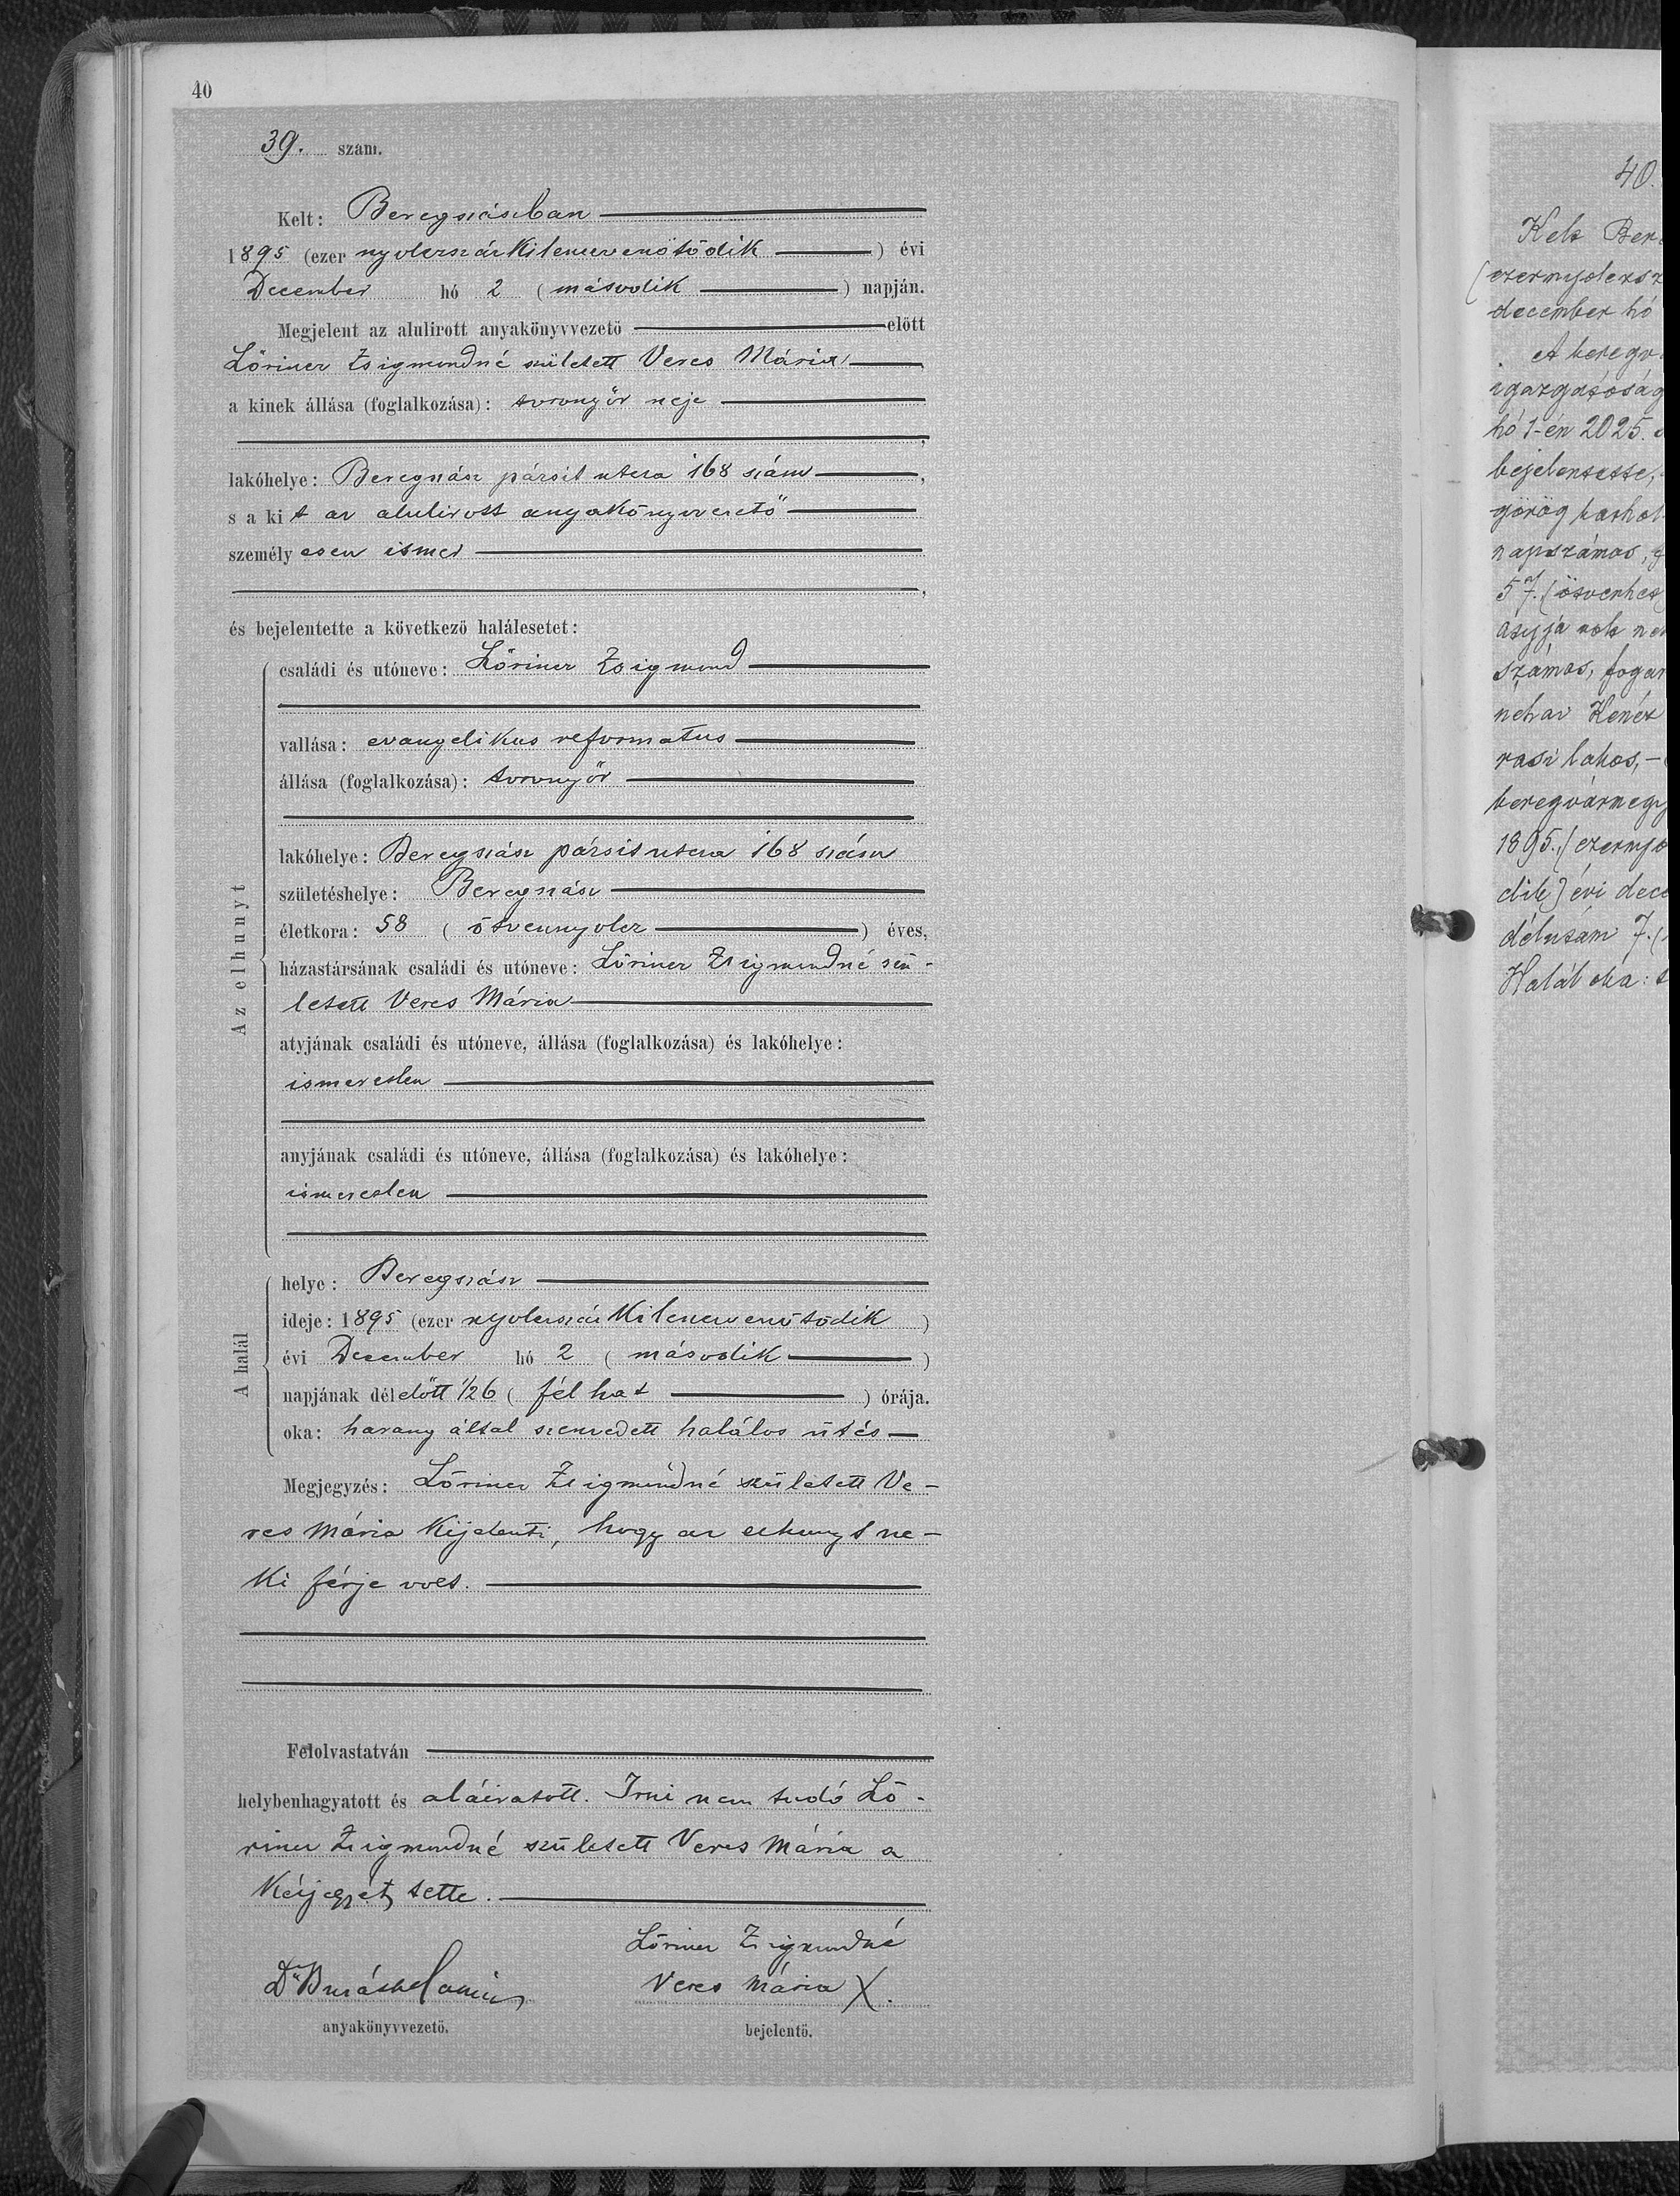 40
39. szám.
Kelt: Beregszászban
1895 (ezer nyolczszázkilenczvenötödik) évi
December hó 2 (második) napján.
Megjelent az alulirott anyakönyvvezető előtt
Lőrincz Zsigmondné született Veres Mária,
a kinek állása (foglalkozása): toronyőr neje
,
lakóhelye: Beregszász pázsit utcza 168 szám,
s a kit az alulirott anyakönyvvezető
személyesen ismer
,
és bejelentette a következő halálesetet:
Az elhunyt
családi és utóneve: Lőrincz Zsigmond
vallása: evangelikus reformatus
állása (foglalkozása): toronyőr
lakóhelye: Beregszász pázsit utcza 168 szám
születéshelye: Beregszász
életkora: 58 (ötvennyolcz) éves,
házastársának családi és utóneve: Lőrincz Zsigmondné szü-
letett Veres Mária
atyjának családi és utóneve, állása (foglalkozása) és lakóhelye:
ismeretlen
anyjának családi és utóneve, állása (foglalkozása) és lakóhelye:
ismeretlen
A halál
helye: Beregszász
ideje: 1895 (ezer nyolczszáz kilenczvenötödik)
évi December hó 2 (második)
napjának délelőtt 1/26 (fél hat) órája.
oka: harang által szenvedett halálos ütés
Megjegyzés: Lőrincz Zsigmondné született Ve-
res Mária kijelenti, hogy az elhunyt ne-
ki férje volt.
Felolvastatván
helybenhagyatott és aláiratott. Irni nem tudó Lő-
rincz Zsigmondné született Veres Mária a
kézjegyét tette.
Lőrincz Zsigmondné
Veres Mária X.
anyakönyvvezető.
bejelentő.
40.
Kelt Ber
(ezernyolczsz
december hó
A beregv
igazgatóság
hó 1-én 2025.
bejelentette,
görög kathol
napszámos,
57. (ötvenhet
atyja volt
számos, fogan
néhai Kenéz
rasi lakos, -
beregvármegy
1895. (ezernyo
dik) évi dec
délután 7. (
Halál oka: